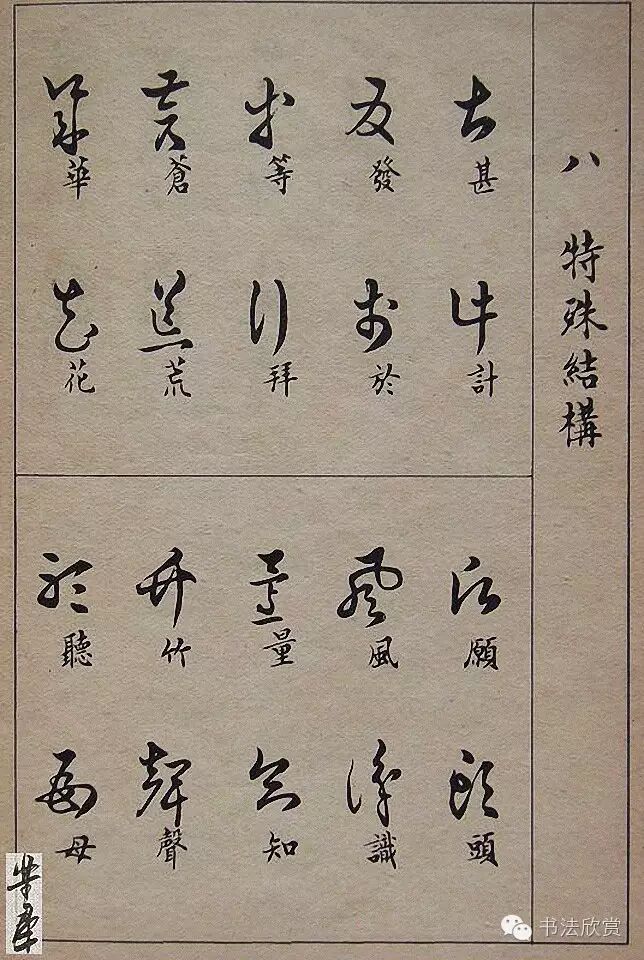 八 特殊結構
甚 計
發 於
等 拜
蒼 荒
華 花
願 頭
風 識
量 知
竹 聲
聽 母
书法欣赏